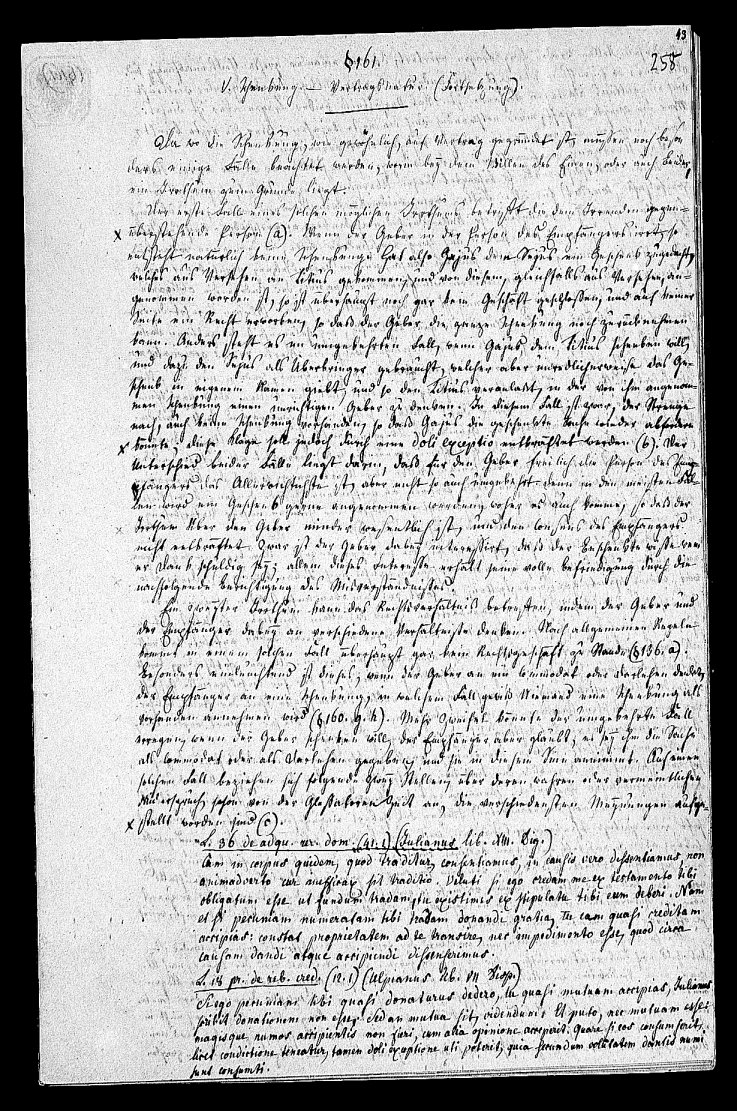 43
258
§161.
V. Schenkung. – Vertragsnatur. (Fortsetzung).
Da wo die Schenkung, wie gewöhnlich, auf Vertrag gegründet ist, müssen noch beson
ders einige Fälle betrachtet werden, worin bey dem Willen des Einen, oder auch Beider,
ein Irrthum zum Grunde liegt.
Der erste Fall eines solchen möglichen Irrthums betrifft die dem Irrenden gegen-
überstehende Person (a). Wenn der Geber in der Person des Empfängers irrt, so
entsteht natürlich keine Schenkung. Hat also Gajus dem Sejus ein Geschenk zugedacht,
welches aus Versehen an Titius gekommen, und von diesem, gleichfalls aus Versehen, an-
genommen worden ist, so ist überhaupt noch gar kein Geschäft geschlossen, und auf keiner
Seite ein Recht erworben, so daß der Geber die ganze Schenkung noch zurücknehmen
kann. Anders steht es im umgekehrten Fall, wenn Gajus dem Titius schenken will,
und dazu den Sejus als Überbringer gebraucht, welcher aber unredlicherweise das Ge-
schenk in eigenem Namen giebt, und so den Titius veranlaßt, in der von ihm angenom
menen Schenkung einen unrichtigen Geber zu denken. In diesem Fall ist zwar, der Strenge
nach, auch keine Schenkung vorhanden, so daß Gajus die geschenkte Sache wieder abfordern
könnte; diese Klage soll jedoch durch eine doli exceptio entkräftet werden (b). Der
Unterschied beider Fälle liegt darin, daß für den Geber freilich die Person des Em-
pfängers das Allerwichtigste ist, aber nicht so auch umgekehrt, denn in den meisten Fäl
len wird ein Geschenk gerne angenommen werden, woher es auch komme, so daß der
Irrthum über den Geber minder wesentlich ist, und den Consens des Empfängers
nicht entkräftet. Zwar ist der Geber dabey interessirt, daß der Beschenkte wisse wem
er Dank schuldig sey; allein dieses Interesse erhält seine volle Befriedigung durch die
nachfolgende Berichtigung des Misverständnisses.
Ein zweyter Irrthum kann das Rechtsverhältniß betreffen, indem der Geber und
der Empfänger dabey an verschiedene Verhältnisse denken. Nach allgemeinen Regeln
kommt in einem solchen Fall überhaupt gar kein Rechtsgeschäft zu Stande (§136. a).
Besonders einleuchtend ist dieses, wenn der Geber an ein Commodat oder Darlehen denkt,
der Empfänger an eine Schenkung, in welchem Fall gewiß Niemand eine Schenkung als
vorhanden annehmen wird (§160. g. h). Mehr Zweifel könnte der umgekehrte Fall
erregen, wenn der Geber schenken will, der Empfänger aber glaubt, es sey ihm die Sache
als Commodat oder als Darlehen gegeben, und sie in diesem Sinn annimmt. Auf einen
solchen Fall beziehen sich folgende zwey Stellen, über deren wahren oder vermeintlichen
Widerspruch, schon von der Glossatoren Zeit an, die verschiedensten Meynungen aufge-
stellt worden sind (c).
L. 36 de adqu. rer. dom. (41. 1) (Julianus lib. XIII. Dig.)
Cum in corpus quidem, quod traditur, consentiamus, in causis vero dissentiamus, non
animadverto cur inefficax sit traditio. Veluti si ego credam me ex testamento tibi
obligatum esse ut fundum tradam, tu existimes ex stipulatu tibi eum deberi. Nam
et si pecuniam numeratam tibi tradam donandi gratia, tu eam quasi creditam
accipias: constat proprietatem ad te transire, nec impedimento esse, quod circa
causam dandi atque accipiendi dissenserimus.
L. 18 pr. de reb. cred. (12. 1) (Ulpianus lib. VII Disp.)
Si ego pecuniam tibi quasi donaturus dedero, tu quasi mutuam accipias, Julianus
scribit donationem non esse. Sed an mutua sit, videndum. Et puto, nec mutuam esse:
magisque numos accipientis non fieri, cum alia opinione acceperit. Quare si eos consumserit,
licet condictione teneatur, tamen doli exceptione uti poterit, quia secundum voluntatem dantis numi
sunt consumti.